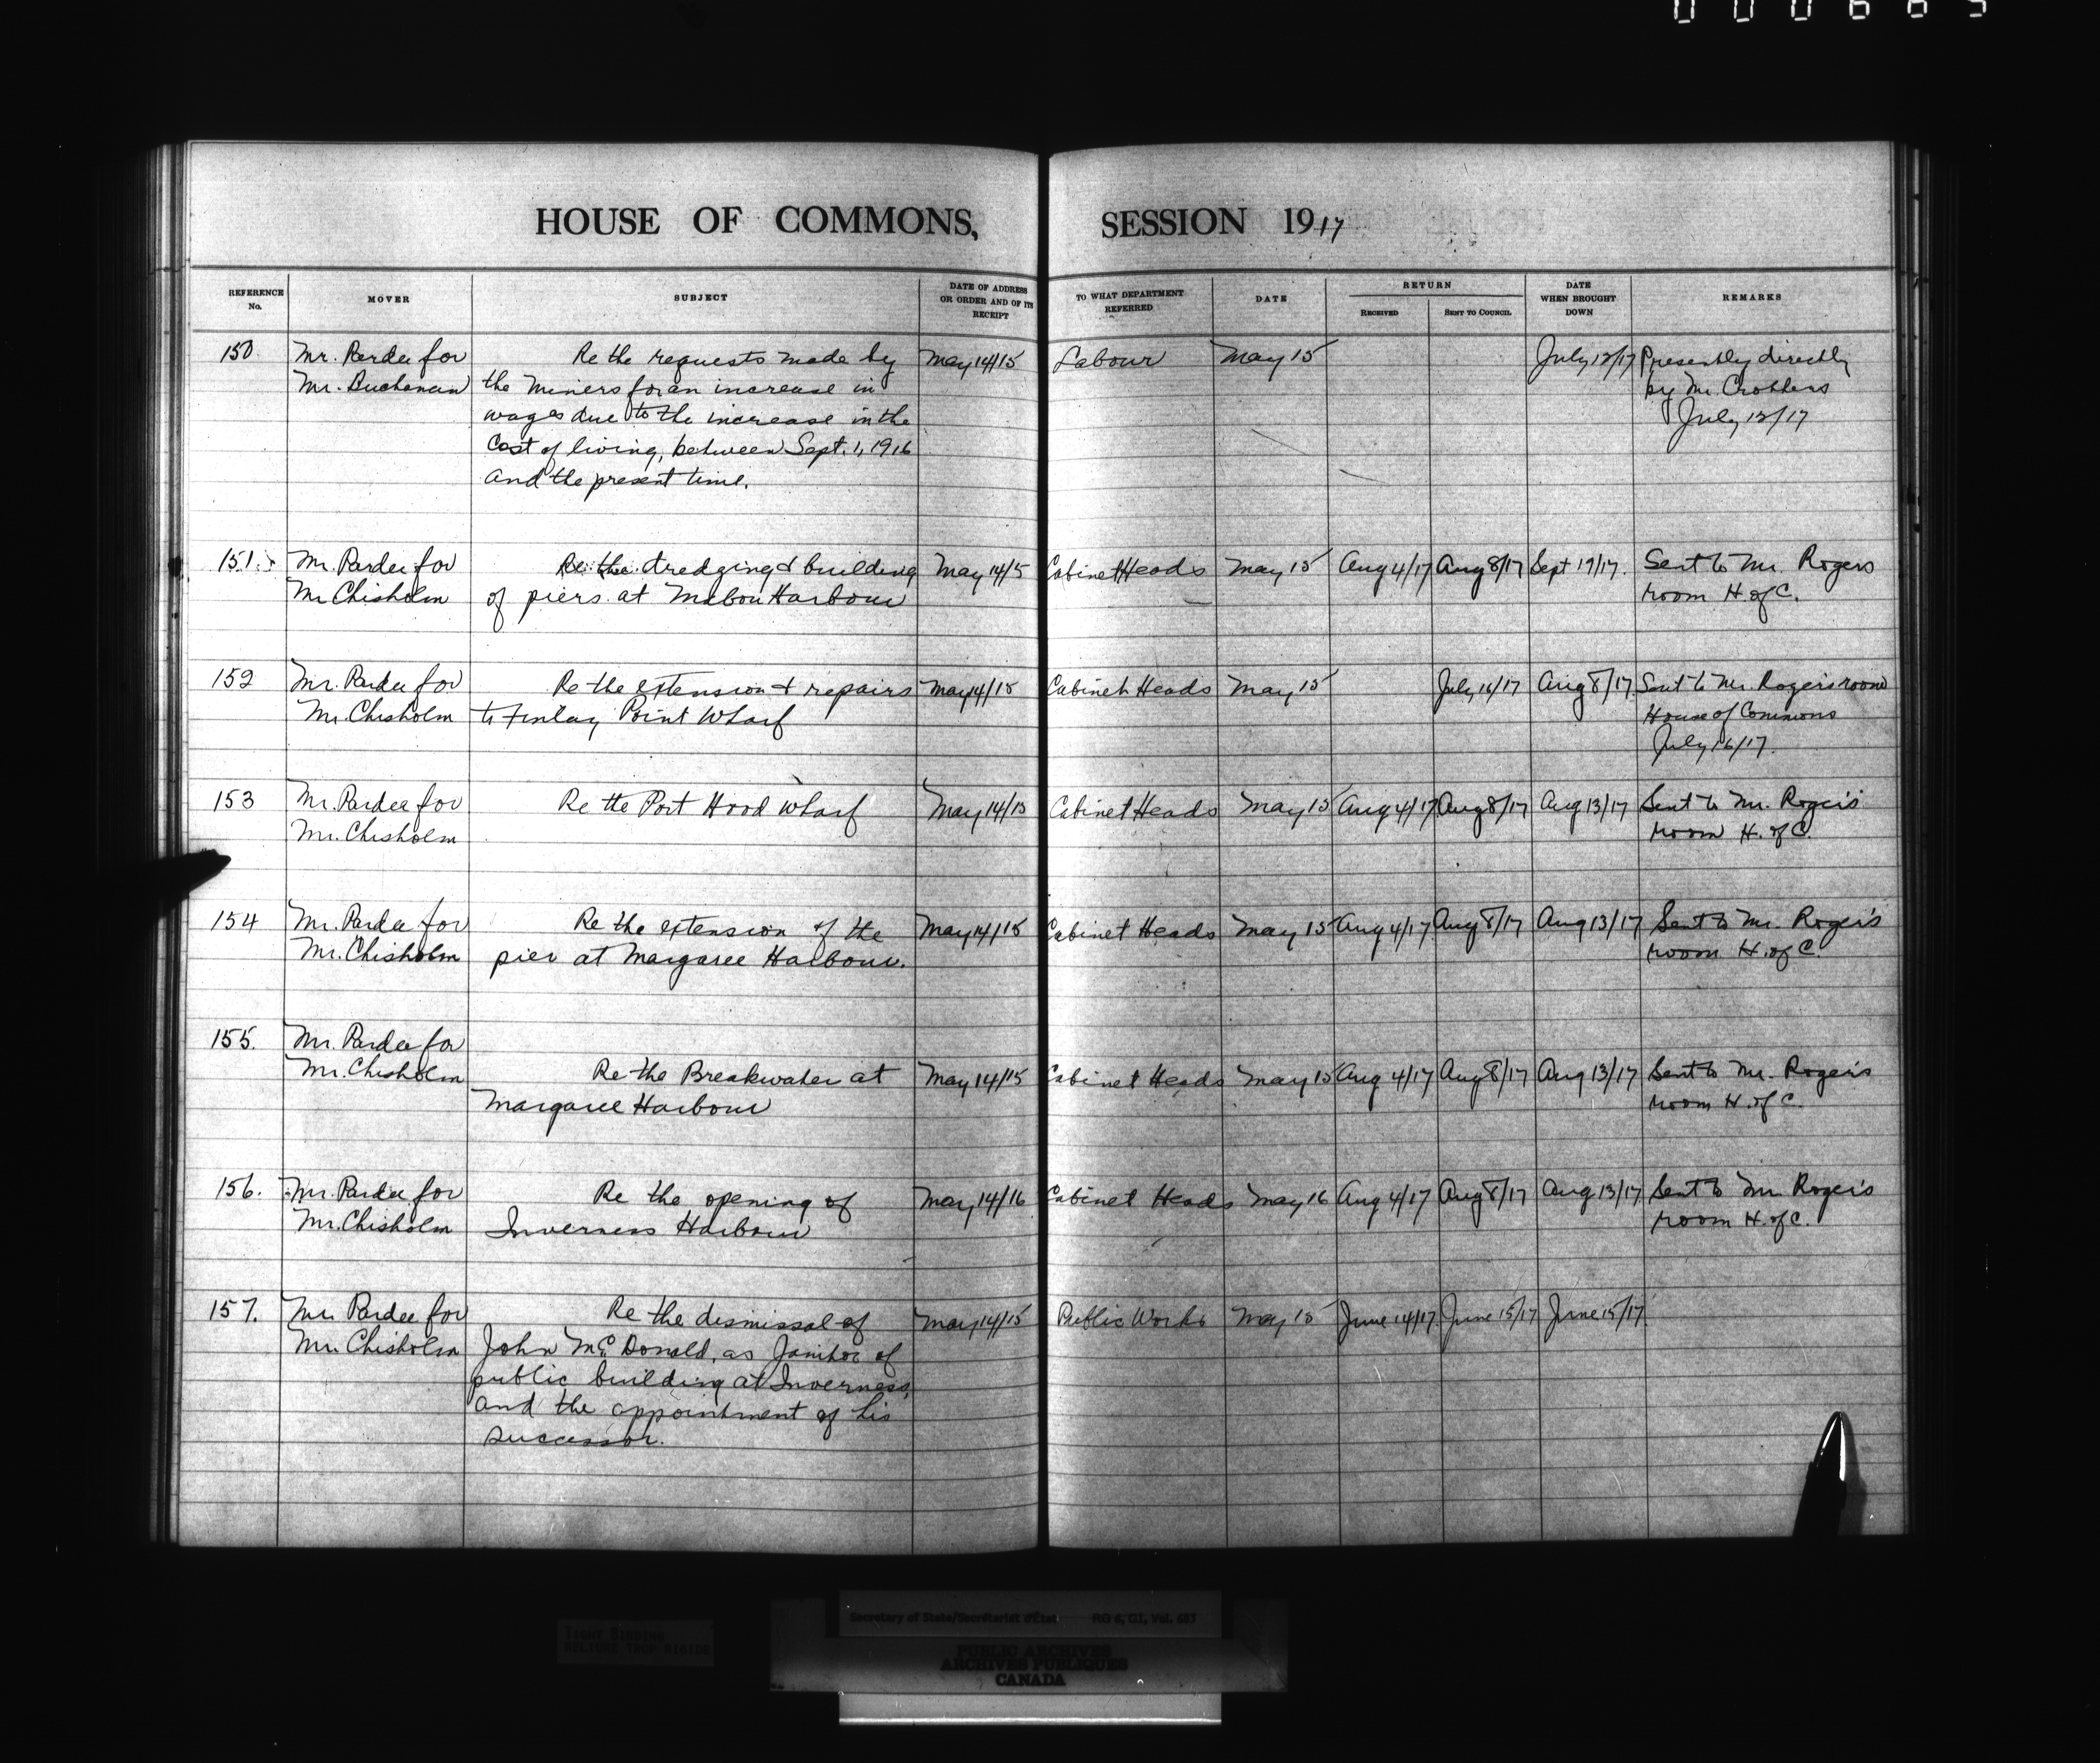 000665
HOUSE OF COMMONS, SESSION 1917
REFERENCE No. MOVER SUBJECT DATE OF ADDRESS OR ORDER AND OF ITS RECEIPT TO WHAT DEPARTMENT REFERRED DATE RETURN RECEIVED SENT TO COUNCIL DATE WHEN BROUGHT DOWN REMARKS
150 Mr. Pardee for Re the requests made by May 14/15 Labour May 15 July 12/17 Presently directly
Mr. Buchanan the miners for an increase in by Mr. Crothers
wages due to the increase in the July 12/17
Cost of living, between Sept. 1, 1916
and the present time.
151. Mr. Pardee for Re the dredging & building May 14/15 Cabinet Heads May 15 Aug 4/17 Aug 8/17 Sept 19/17. Sent to Mr. Rogers
Mr Chisholm of piers at Mabou Harbour room H. of C.
152 Mr. Pardee for Re the extension & repairs May 14/15 Cabinet Heads May 15 July 16/17 Aug 8/17 Sent to Mr. Roger's room
Mr. Chisholm to Finlay Point Wharf House of Commons
July 16/17.
153 Mr. Pardee for Re the Port Hood Wharf May 14/15 Cabinet Heads May 15 Aug 4/17 Aug 8/17 Aug 13/17 Sent to Mr. Roger's
Mr. Chisholm room H. of C.
154 Mr. Pardee for Re the extension of the May 14/15 Cabinet Heads May 15 Aug 4/17 Aug 8/17 Aug 13/17 Sent to Mr. Roger's
Mr. Chisholm pier at Margaree Harbour. room H. of C.
155. Mr. Pardee for
Mr. Chisholm Re the Breakwater at May 14/15 Cabinet Heads May 15 Aug 4/17 Aug 8/17 Aug 13/17 Sent to Mr. Roger's
Margaree Harbour room H. of C.
156. Mr. Pardee for Re the opening of May 14/16 Cabinet Heads May 16 Aug 4/17 Aug 8/17 Aug 13/17 Sent to Mr Roger's
Mr. Chisholm Inverness Harbour room H. of C.
157. Mr. Pardee for Re the dismissal of May 14/15 Public Works May 15 June 14/17 June 15/17 June 15/17
Mr. Chisholm John McDonald, as Janitor of
public building at Inverness,
and the appointment of his
successor.
Secretary of State/Secrétariat d'État RG 6, G1, Vol. 683
TIGHT BINDING
RELIURE TROP RIGIDE
PUBLIC ARCHIVES
ARCHIVES PUBLIQUES
CANADA